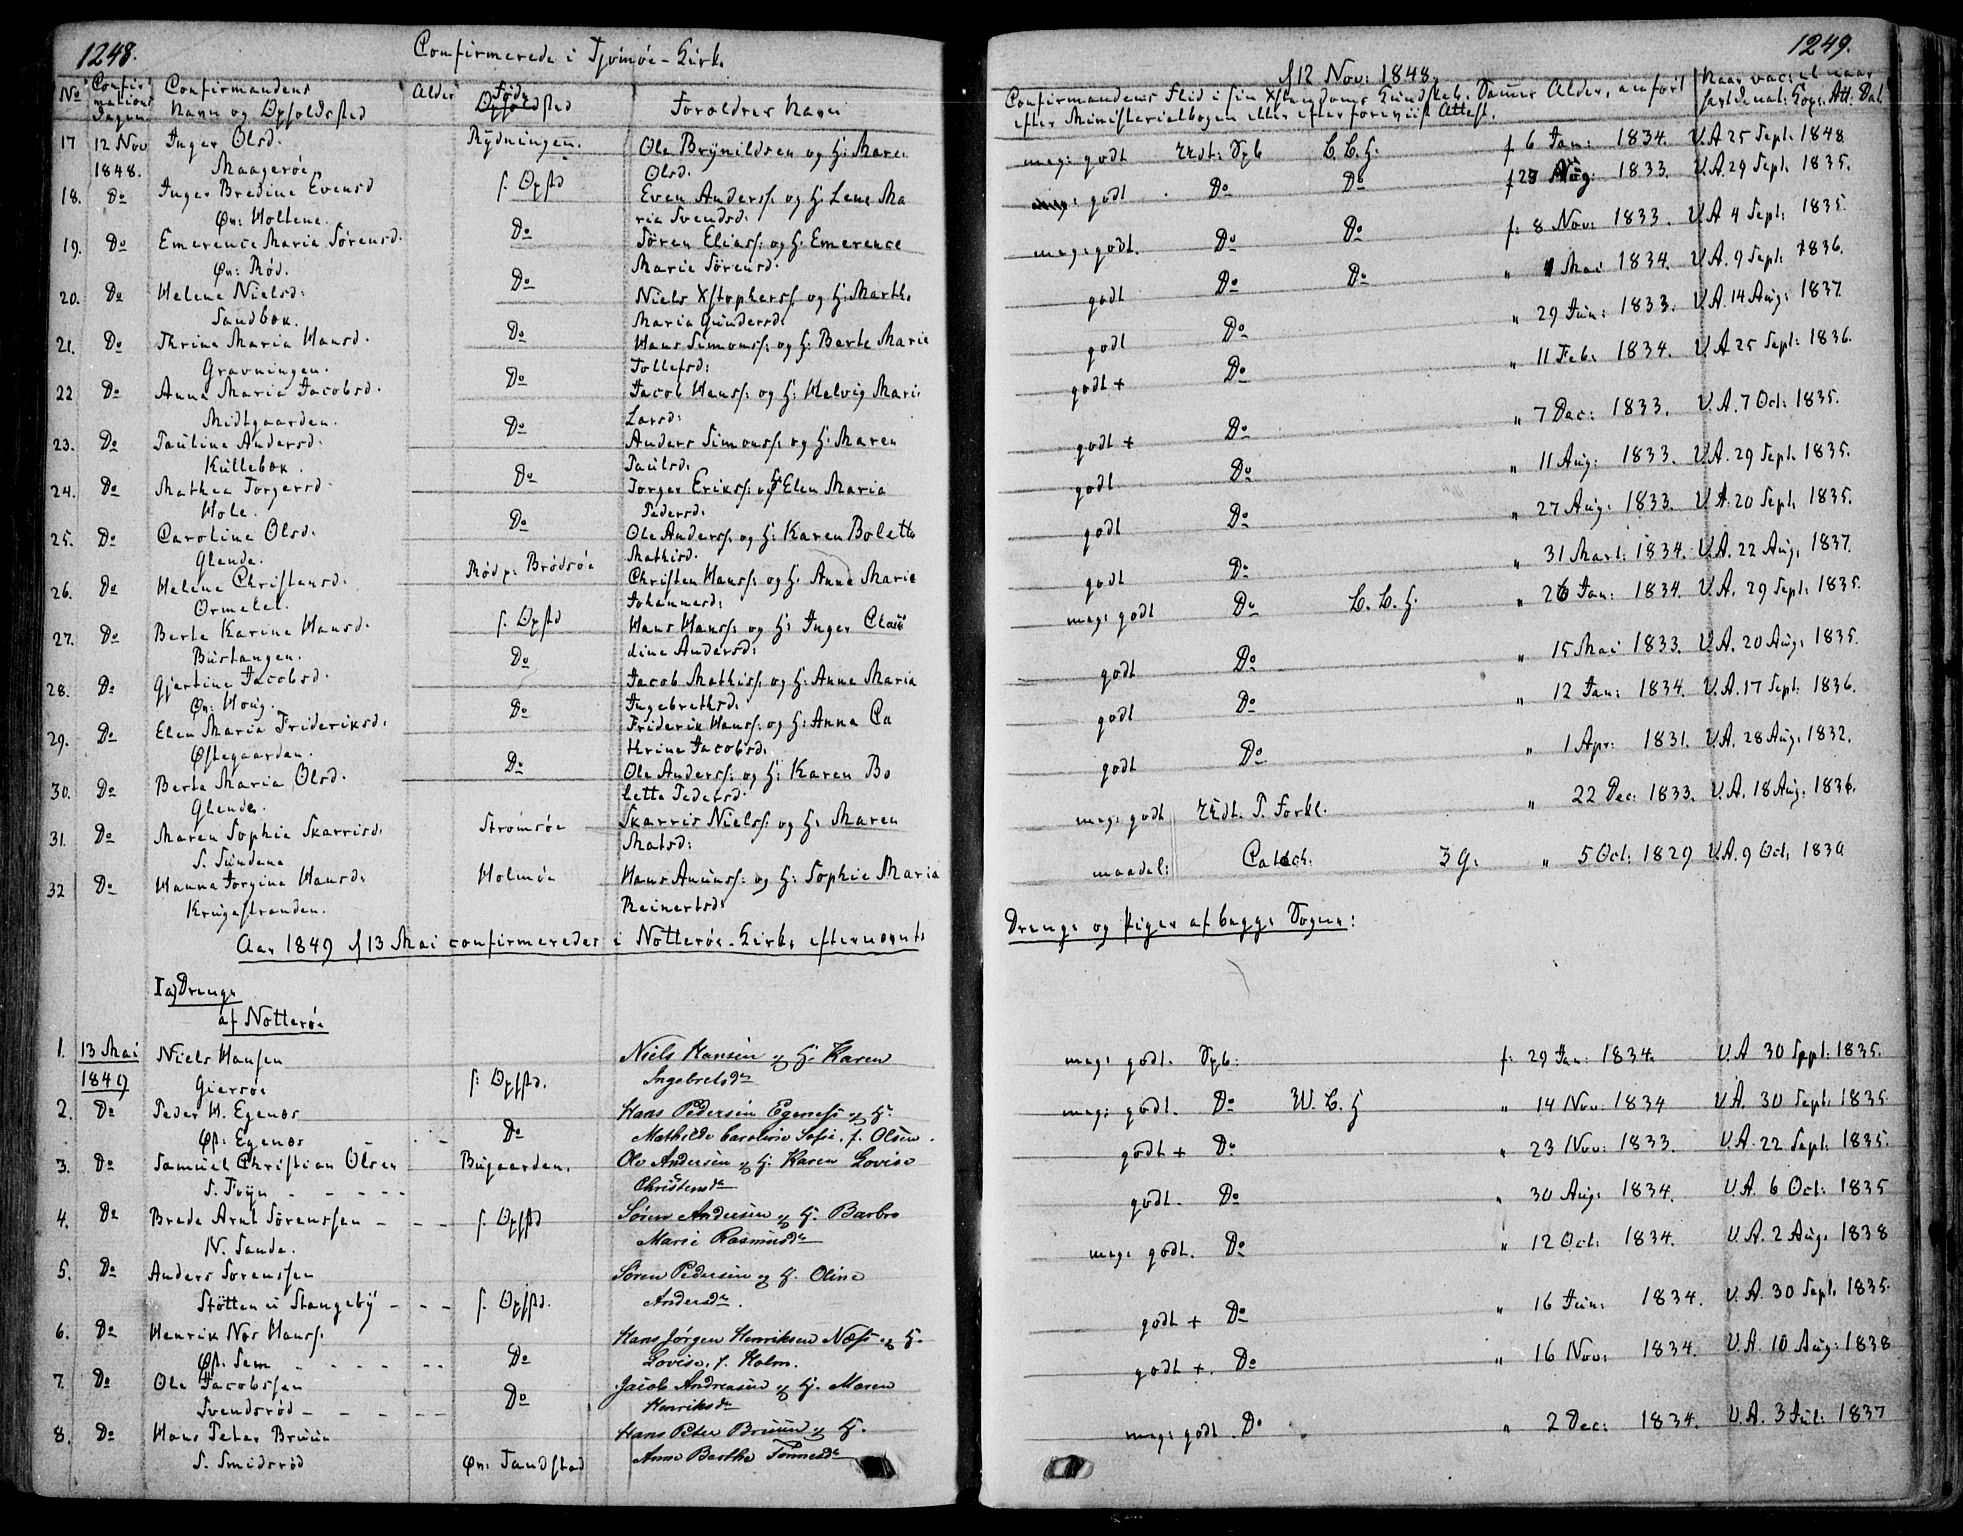 1248.
Confirmerede i Tjömöe-Kirke
No Confirmations Dagen. Confirmandens Navn og Opholdsted Alder Føde Opholdsted Forældres Navn
17 12 Nov 1848. Inger Olsd. Rydningen. Ole Brynildsen og H: Maren
Maagerøe Olsd.
18. Do Inger Bredine Evensd f: Opstd Even Anderss: og H: Lene Ma
Øn: Holtene. ria Svendsd.
19. Do Emerence Maria Sørensd. Do Søren Eliass: og H: Emerence
Øn: Rød. Marie Sørensd.
20. Do Helene Nielsd: Do Niels Xstophers: og H: Marthe
Sandbæk. Maria Gundersd:
21. Do Thrine Maria Hansd. Do Hans Simons: og H: Berte Marie
Gravningen. Tollefsd:
22 Do Anna Maria Jacobsd. Do Jacob Hans: og H: Helvig Marie
Midtgaarden. Larsd:
23. Do Pauline Andersd. Do Anders Simons: og H: Maren
Kullebæk. Paulsd.
24. Do Mathea Torgersd Do Torger Eriks: og H: Elen Maria
Hole. Pedersd.
25. Do Caroline Olsd. Do Ole Anders: og H: Karen Bolette
Glende. Mathisd.
26. Do Helene Christensd. Rød p: Brødsøe Christen Hans: og H: Anne Marie
Ormelet. Johannesd:
27. Do Berte Karine Hansd. f: Opstd Hans Hans: og H: Inger Clau
Bustangen. dine Andersd:
28. Do Gjertine Jacobsd. Do Jacob Mathis: og H: Anne Maria
Øn: Houg. Ingebrethsd.
29. Do Elen Maria Frideriksd. Do Friderik Hans: og H: Anna Ca
Østegaarden. thrine Jacobsd.
30. Do Berte Maria Olsd. Do Ole Anders: og H: Karen Bo
Glende. lette Pedersd.
31. Do Maren Sophie Skarrisd. Stromsøe Skarris Niels: og H: Maren
S. Sundene Matsd:
32 Do Hanna Jorgine Hansd: Holmøe Hans Amuns: og H: Sophie Maria
Krugestranden. Reinertsd:
Aar 1849 d 13 Mai confirmeredes i Nøtterøe-Kirke efternævnte
I a) Drenge
af Nøtterøe
1. 13 Mai 1849 Niels Hansen f: Opstd. Niels Hansen og H: Karen
Giersøe Ingebretsdr
2. Do Peder H. Egenæs Do Hans Pedersen Egenæss og H:
Øst: Egenæs Mathilde Caroline Sofie, f. Olsen.
3. Do Samuel Christian Olsen Bugaarden. Ole Andersen og H: Karen Lovise
S. Foyn Christensdr
4. Do Brede Arnt Sørenssen f. Opstd Søren Andersen og H. Barbro
N. Sande. Marie Rasmusdr
5. Do Anders Sorenssen f. Opstd. Søren Pedersen og H. Oline
Støtten u Stangeby Andersdr.
6. Do Henrik Næs Hanss. Do Hans Jørgen Henriksen Næss og H.
Øst. Sem Lovise, f. Holm.
7. Do Ole Jacobssen Do Jacob Andreasen og H. Maren
Svendsrød Henriksdr
8. Do Hans Peter Bruun Øn: Tandstad Hans Peter Bruun og H.
S. Smidsrød Anne Barthe Tønnesdr
1249.
d 12 Nov: 1848.
Confirmandens Flid i sin Xstendoms Kundskab. Dennes Alder, anført efter Ministerialbogen eller efter foreviist Attest. Naar vaccineret naar
meg: godt Udt: Spb C.C.H. f 6 Jan: 1834. V.A 25 Sept: 1848.
meg: godt Do Do f 23 Aug: 1833. V.A. 29 Sept. 1835.
meg: godt. Do Do f: 8 Nov: 1833. V.A 4 Sept: 1835.
godt Do Do " 4 Mai 1834. V.A. 9 Sept: 1836.
godt Do " 29 Jun: 1833. V.A. 14 Aug: 1837.
godt + Do " 11 Feb: 1834. V.A 25 Sept: 1836.
godt + Do " 7 Dec: 1833. V.A. 7 Oct: 1835.
godt Do " 11 Aug: 1833. V.A. 29 Sept. 1835.
godt Do " 27 Aug: 1833. V.A. 20 Sept. 1835.
godt Do " 31 Mart: 1834. V.A. 22 Aug: 1837.
meg: godt Do C.C.H. " 26 Jan: 1834. V.A. 29 Sept: 1835.
godt Do " 15 Mai 1833. V.A. 20 Aug: 1835.
godt Do " 12 Jan: 1834. V.A. 17 Sept: 1836.
godt Do " 1 Apr: 1831. V.A. 28 Aug: 1832.
meg: godt Udt. P. Forkl. " 22 Dec: 1833. V.A. 18 Aug: 1836.
maadel: Catech: 3 G: " 5 Oct: 1829 V.A. 9 Oct: 1830
Drenge og Piger af begge Sogne:
meg: godt. Spb. f: 29 Jan: 1834. V.A 30 Sept. 1835.
meg: godt. Do W.C.H " 14 Nov: 1834 V.A. 30 Sept: 1835
godt + Do " 23 Nov: 1833. V.A. 22 Sept: 1835.
godt. Do " 30 Aug: 1834. V.A. 6 Oct: 1835
meg: godt. Do " 12 Oct: 1834. V.A. 2 Aug: 1838
godt + Do " 16 Jun: 1834. V.A. 30 Sept. 1835.
godt +. Do " 16 Nov: 1834. V.A. 10 Aug: 1838
meg: godt. Do " 2 Dec: 1834. V.A. 3 Jul: 1837